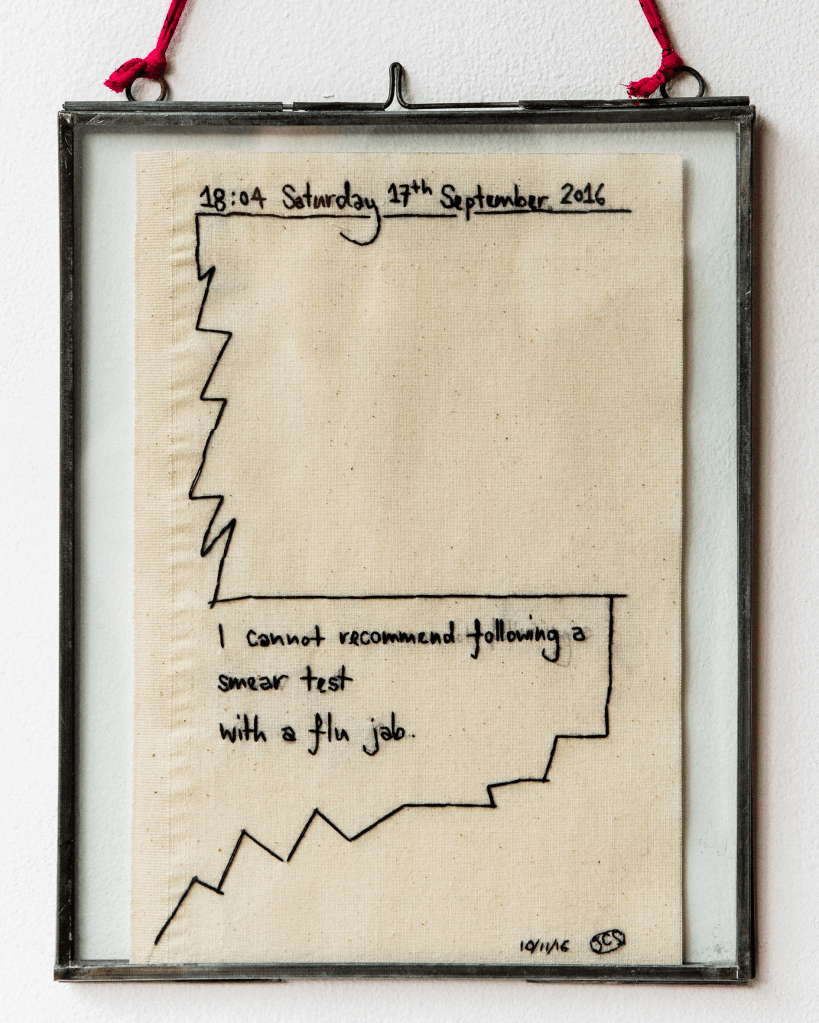 18:04 Saturday 17th September 2016
I cannot recommend following a
smear test
with a flu jab.
10/11/16 SCS